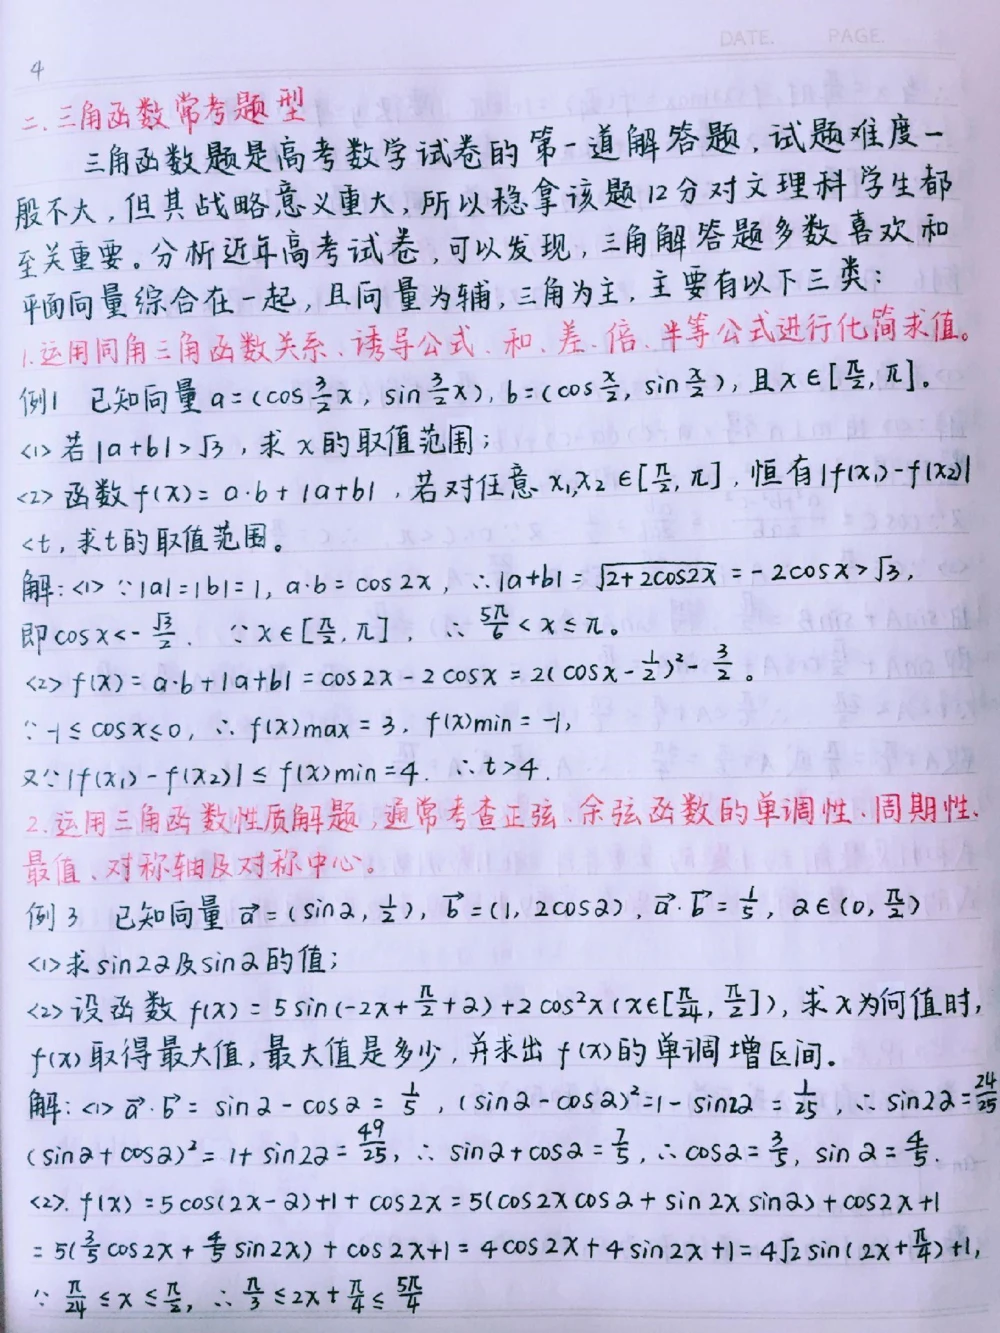 DATE. PAGE.
4
二.三角函数常考题型
三角函数题是高考数学试卷的第一道解答题,试题难度一
般不大,但其战略意义重大,所以稳拿该题12分对文理科学生都
至关重要。分析近年高考试卷,可以发现,三角解答题多数喜欢和
平面向量综合在一起,且向量为辅,三角为主,主要有以下三类:
1.运用同角三角函数关系、诱导公式、和、差、倍、半等公式进行化简求值。
例1 已知向量a=(cos 3/2 x, sin 3/2 x), b=(cos x/2, sin x/2), 且x∈[π/2, π]。
<1>若|a+b|>√3,求x的取值范围;
<2>函数f(x)=a·b+|a+b|,若对任意x₁,x₂∈[π/2, π],恒有|f(x₁)-f(x₂)|
<t,求t的取值范围。
解:<1>∵|a|=|b|=1, a·b=cos2x, ∴|a+b|=√(2+2cos2x)=-2cosx>√3,
即cosx<-√3/2. ∵x∈[π/2, π], ∴5π/6<x≤π。
<2>f(x)=a·b+|a+b|=cos2x-2cosx=2(cosx-1/2)²-3/2。
∵-1≤cosx≤0, ∴f(x)max=3, f(x)min=-1,
又∵|f(x₁)-f(x₂)|≤f(x)min=4. ∴t>4.
2.运用三角函数性质解题,通常考查正弦、余弦函数的单调性、周期性、
最值、对称轴及对称中心。
例3 已知向量a⃗=(sin2, 1/2), b⃗=(1, 2cos2), a⃗·b⃗=1/5, 2∈(0, π/2)
<1>求sin22及sin2的值;
<2>设函数f(x)=5sin(-2x+π/2+2)+2cos²x(x∈[π/24, π/2]),求x为何值时,
f(x)取得最大值,最大值是多少,并求出f(x)的单调增区间。
解:<1>a⃗·b⃗=sin2-cos2=1/5, (sin2-cos2)²=1-sin22=1/25, ∴sin22=24/25
(sin2+cos2)²=1+sin22=49/25, ∴sin2+cos2=7/5, ∴cos2=3/5, sin2=4/5.
<2>.f(x)=5cos(2x-2)+1+cos2x=5(cos2xcos2+sin2xsin2)+cos2x+1
=5(3/5cos2x+4/5sin2x)+cos2x+1=4cos2x+4sin2x+1=4√2sin(2x+π/4)+1,
∵π/24≤x≤π/2, ∴π/3≤2x+π/4≤5π/4